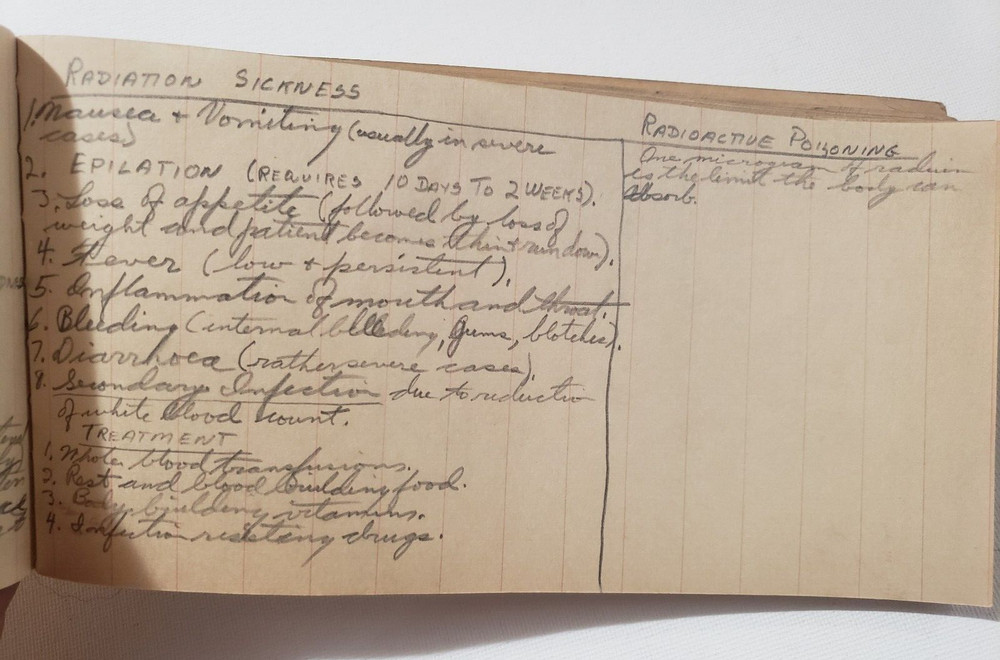 RADIATION SICKNESS
1. Nausea + Vomiting (usually in severe
cases)
2. EPILATION (REQUIRES 10 DAYS TO 2 WEEKS).
3. Loss of appetite (followed by loss of
weight and patient becomes thin + run down).
4. Fever (low + persistent).
5. Inflammation of mouth and throat.
6. Bleeding (internal bleeding, Gums, blotches).
7. Diarrhoea (rather severe cases).
8. Secondary Infection due to reductio
of white blood count.
TREATMENT
1. Whole blood transfusions.
2. Rest and blood building food.
3. Body building vitamins.
4. Infection resisting drugs.
RADIOACTIVE POISONING
One microgram of radium
is the limit the body can
absorb.